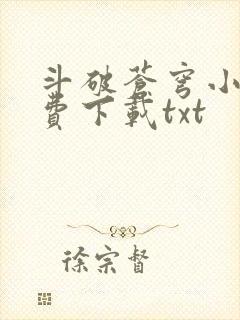 斗破苍穹小
费下载txt
徐宗督